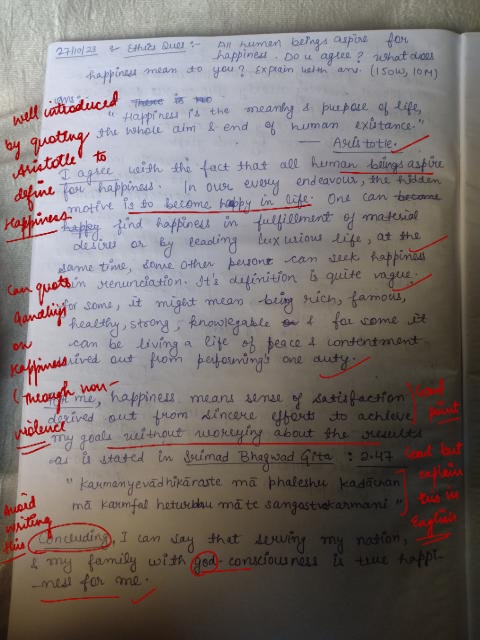 27/10/23 Ethics Ques :- All human beings aspire for
happiness. Do u agree? What does
happiness mean to you? Explain with ans. (150W, 10M)
ans:-
"Happiness is the meaning & purpose of life,
the whole aim & end of human existance."
— Aristotle.
I agree with the fact that all human beings aspire
for happiness. In our every endeavour, the hidden
motive is to become happy in life. One can become
happy find happiness in fulfillment of material
desires or by leading luxurious life, at the
same time, some other person can seek happiness
in renunciation. It's definition is quite vague.
for some, it might mean being rich, famous,
healthy, strong, knowlegable or & for some it
can be living a life of peace & contentment
rived out from performing's one duty.
for me, happiness means sense of satisfaction
derived out from sincere efforts to achieve
my goals without worrying about the results
as is stated in Srimad Bhagwad Gita : 2.47
"Karmanyevadhikāraste mā phaleshu kadāchan
mā karmfal hetur mā te sangostvakarmani"
Concluding, I can say that serving my nation,
& my family with god-consciousness is true happi-
ness for me.
well introduced
by quoting
Aristotle to
define
Happiness
Can quote
Gandhiji
on
Happiness
(through non-
violence
Good
point
Good but
explain
this in
English
Avoid
writing
this